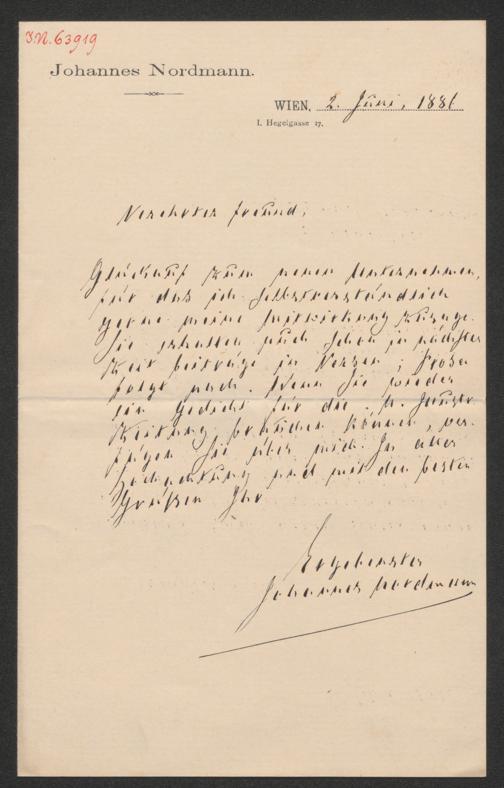 J.N. 63919
Johannes Nordmann.
WIEN, 2. Juni, 1886
I. Hegelgasse 17.
Verehrter Freund,
Glückauf zum neuen Unternehmen,
für das ich selbstverständlich
gerne meine Mitwirkung zusage.
Sie erhalten auch schon in nächster
Zeit Beiträge in Versen; Prosa
folgt nach. Wenn Sie wieder
ein Gedicht für die
Zeitung brauchen können, ver-
fügen Sie über mich. In aller
Hochachtung und mit den besten
Grüßen Ihr
Ergebenster
Johannes Nordmann